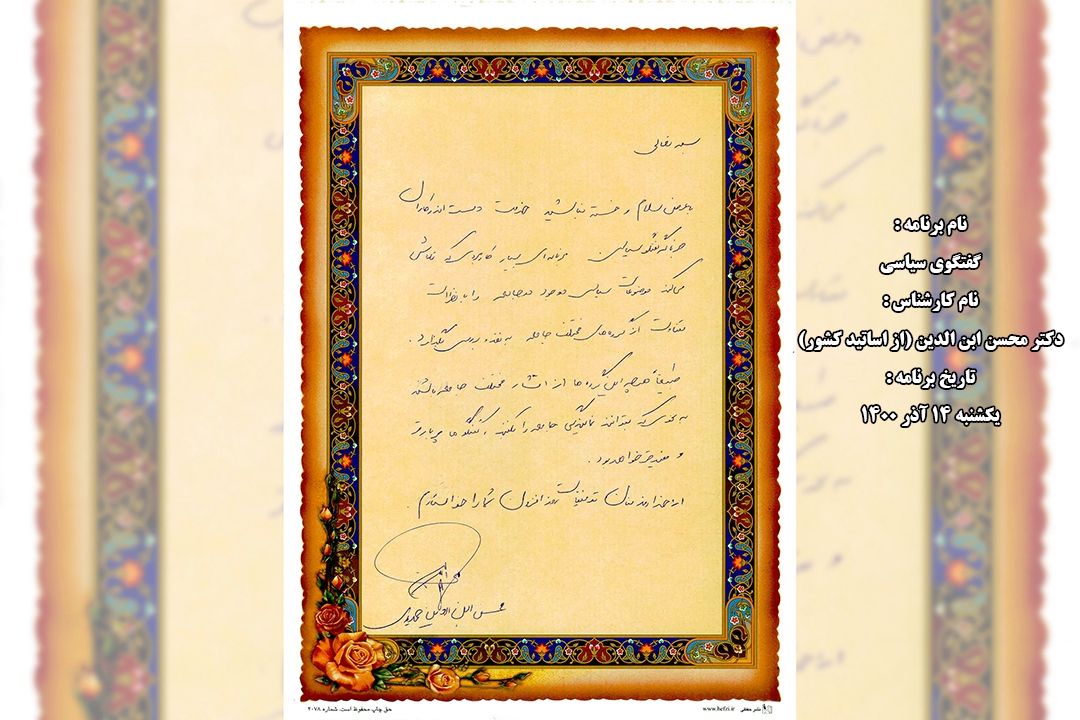 بسمه تعالی
با عرض سلام و خسته نباشید خدمت دست اندرکاران
برنامه گفتگو سیاسی برنامه‌ای بسیار کاربردی که تلاش
می‌کند موضوعات سیاسی موجود در جامعه را با نظرات
متفاوت از گروه‌های مختلف جامعه به نقد و بررسی بگذارد.
طبیعتاً هرچه این گروه‌ها از اقشار مختلف جامعه باشند
به نحوی که بتوانند نمایندگی جامعه را بکنند، گفتگو ها پربارتر
و مفیدتر خواهد بود.
از خداوند منان توفیقات روز افزون شما را خواستارم.
محسن ابن الدین حمیدی
نام برنامه :
گفتگوی سیاسی
نام کارشناس :
دکتر محسن ابن الدین (از اساتید کشور)
تاریخ برنامه :
یکشنبه ۱۴ آذر ۱۴۰۰
حق چاپ محفوظ است. شماره ۲۰۷۸
www.hefzi.ir نشر حفظی